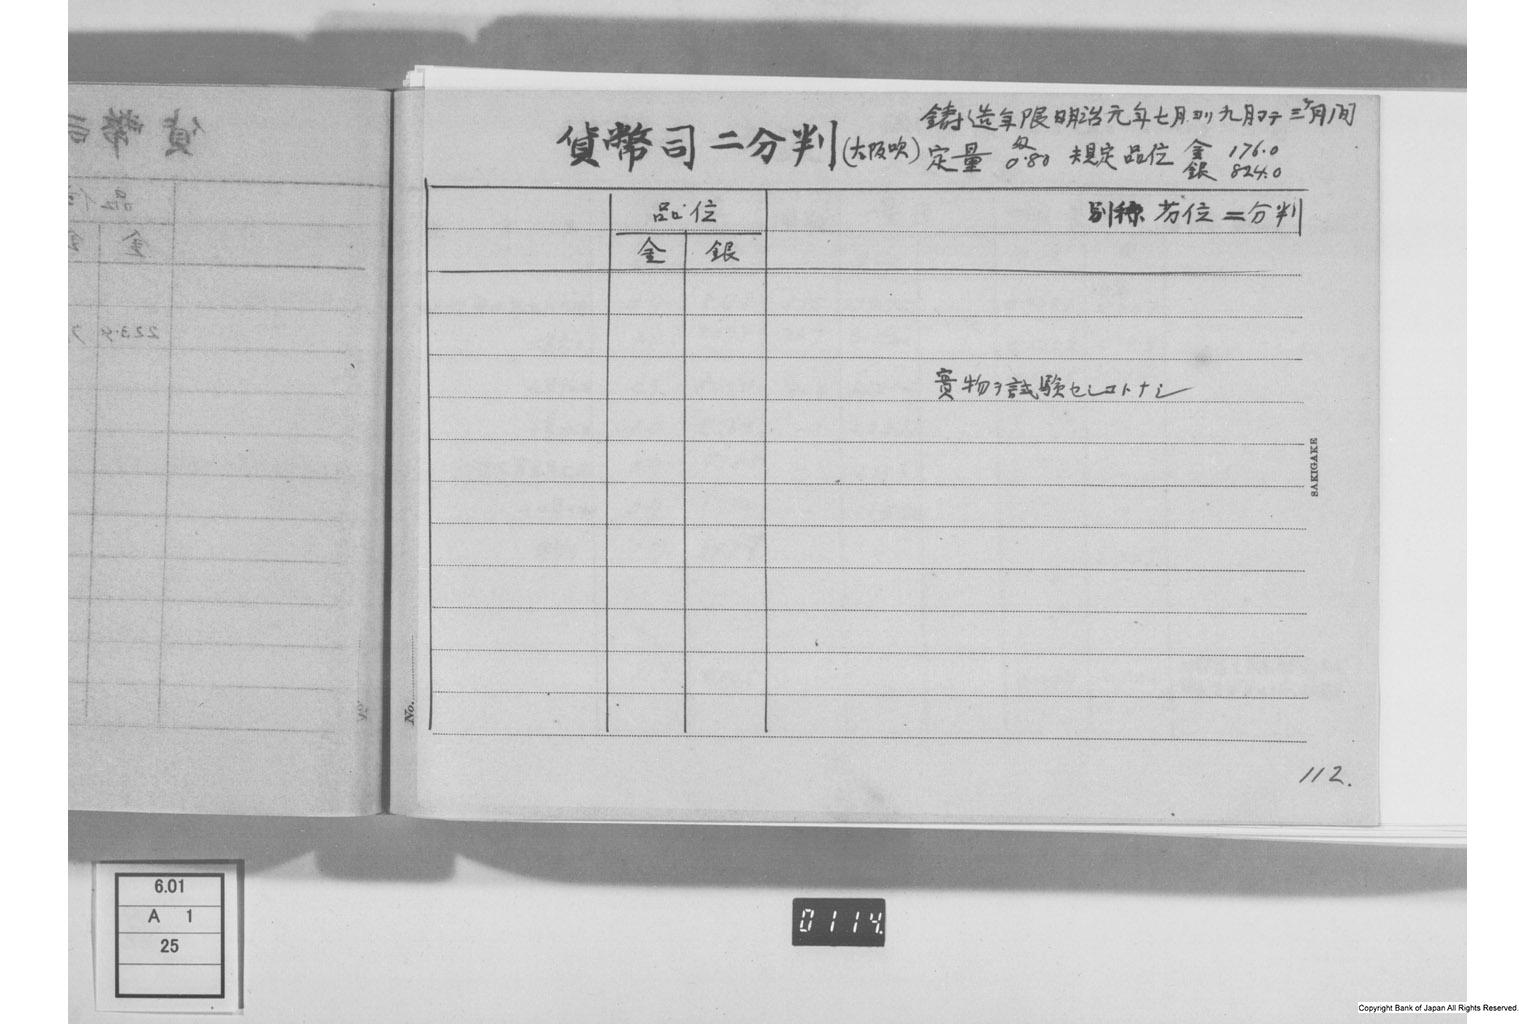 鋳造年限明治元年七月ヨリ九月マテ三ケ月間
貨幣司二分判(大阪吹)
定量 匁 0.80 規定品位 金 176.0
銀 824.0
別種 劣位二分判
品位
金 銀
實物ヲ試験セシコトナシ
SAKIGAKE
No.
112.
貨幣司
品位
金
223.4
6.01
A 1
25
0114
Copyright Bank of Japan All Rights Reserved.